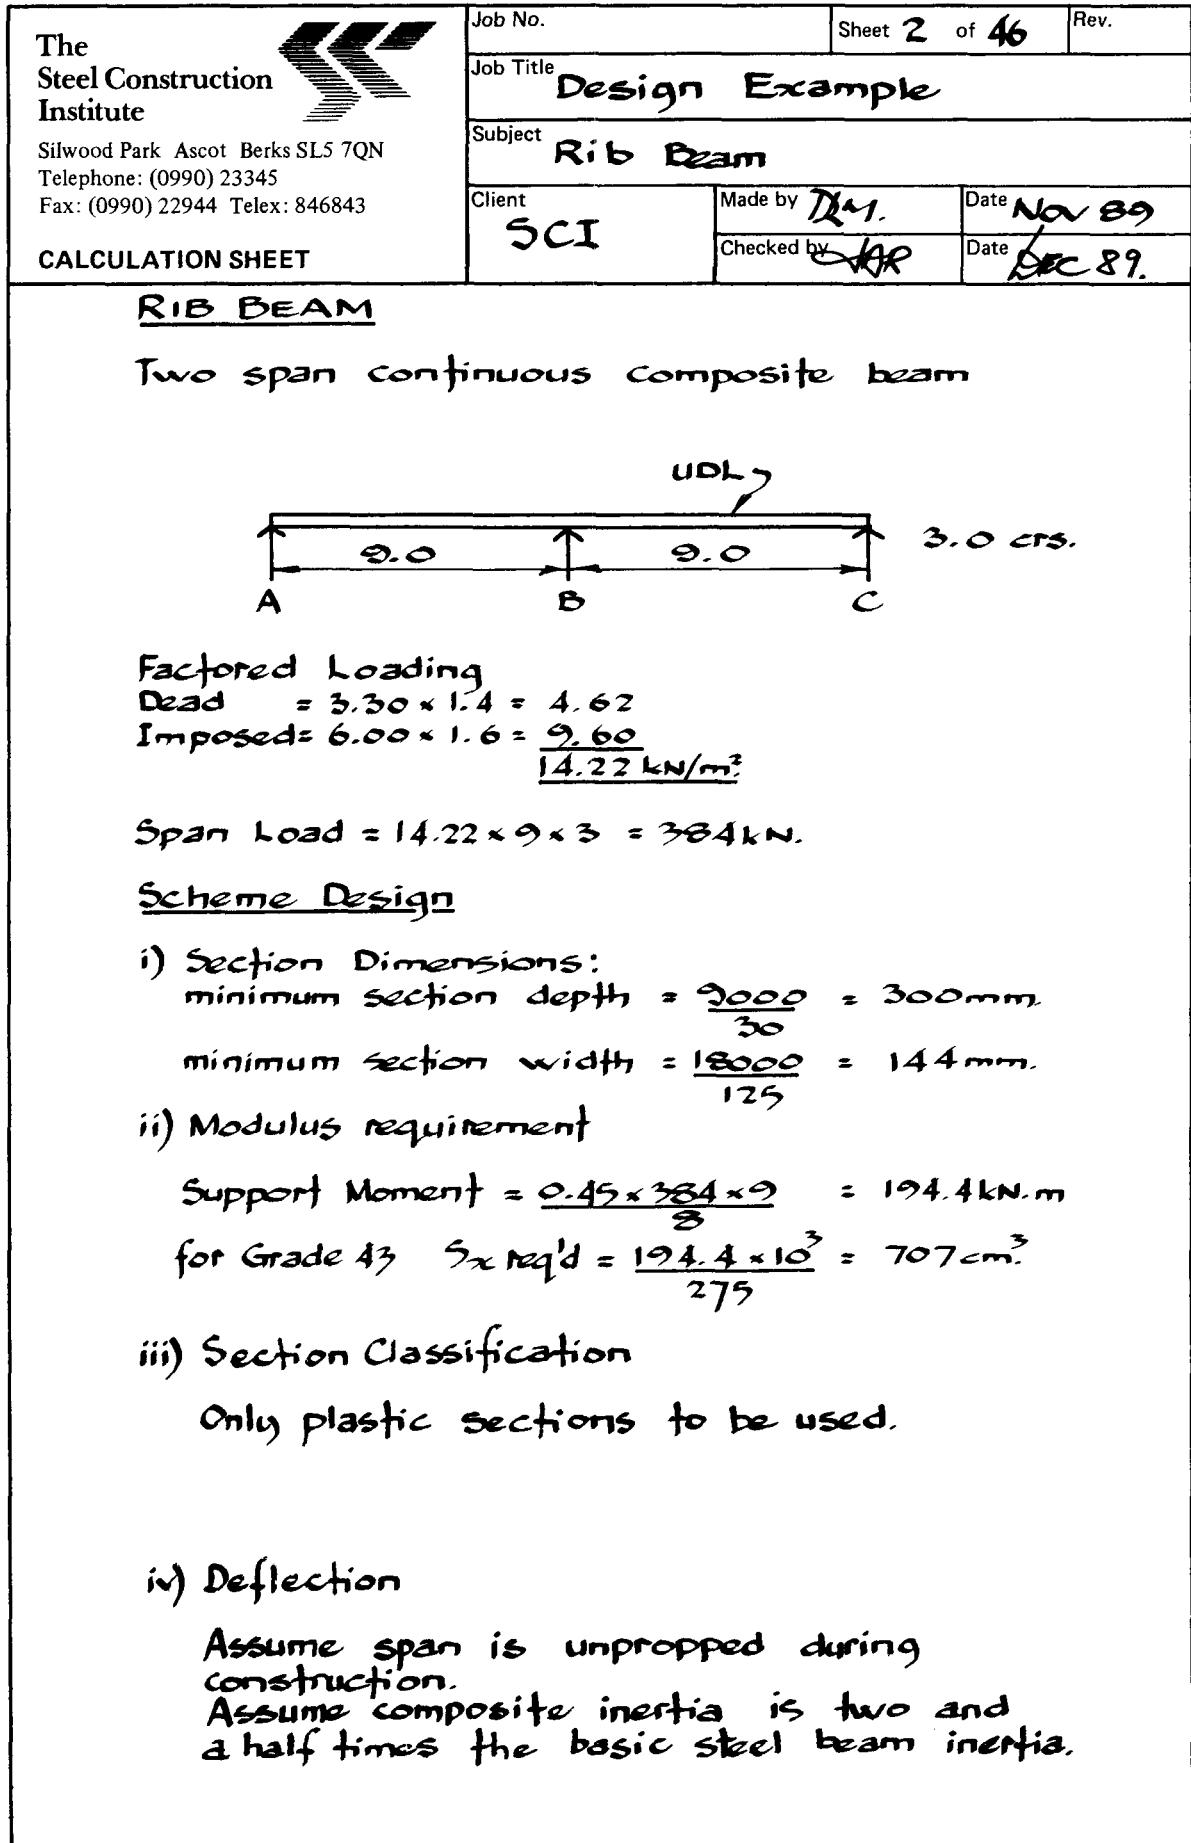 The
Steel Construction
Institute
Silwood Park Ascot Berks SL5 7QN
Telephone: (0990) 23345
Fax: (0990) 22944 Telex: 846843
CALCULATION SHEET
Job No.
Sheet 2 of 46
Rev.
Job Title Design Example
Subject Rib Beam
Client SCI
Made by
Date Nov 89
Checked by
Date DEC 89.
RIB BEAM
Two span continuous composite beam
UDL
9.0 9.0 3.0 crs.
A B C
Factored Loading
Dead = 3.30 × 1.4 = 4.62
Imposed = 6.00 × 1.6 = 9.60
14.22 kN/m².
Span Load = 14.22 × 9 × 3 = 384 kN.
Scheme Design
i) Section Dimensions:
minimum section depth = 9000/30 = 300mm.
minimum section width = 18000/125 = 144mm.
ii) Modulus requirement
Support Moment = 0.45 × 384 × 9/8 = 194.4 kN.m
for Grade 43 Sx req'd = 194.4 × 10³/275 = 707cm³.
iii) Section Classification
Only plastic sections to be used.
iv) Deflection
Assume span is unpropped during
construction.
Assume composite inertia is two and
a half times the basic steel beam inertia.